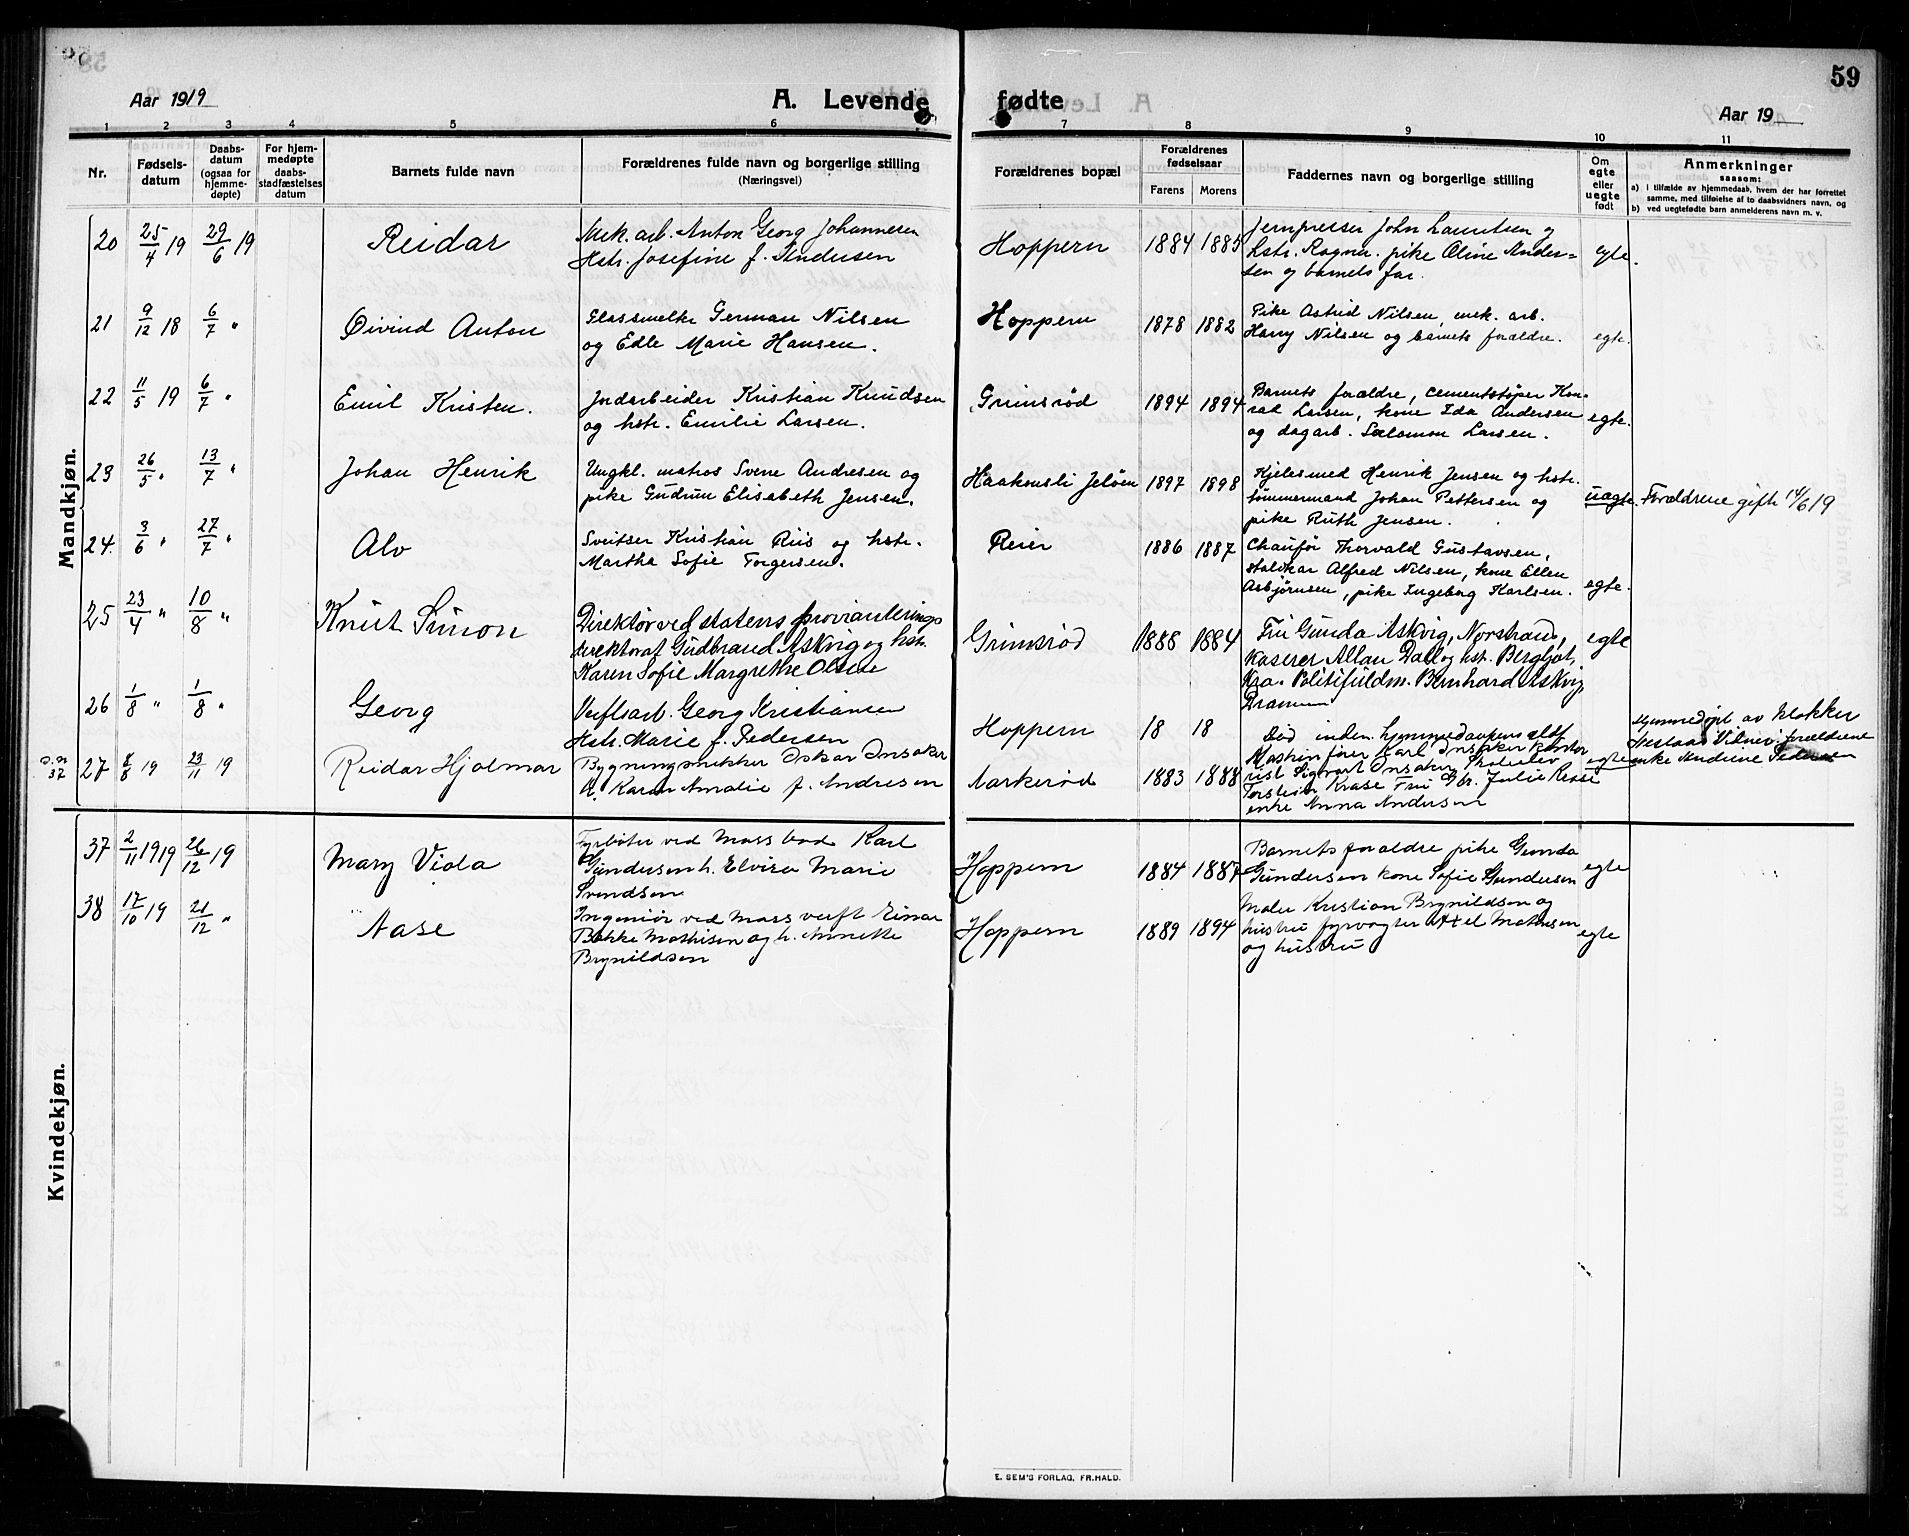 59
Aar 1919
A. Levende fødte
Aar 19
1 2 3 4 5 6 7 8 9 10 11
Nr.
Fødsels-
datum
Daabs-
datum
(ogsaa for
hjemme-
døpte)
For hjem-
medøpte
daabs-
stadfæstelses
datum
Barnets fulde navn
Forældrenes fulde navn og borgerlige stilling
(Næringsvei)
Forældrenes bopæl
Forældrenes
fødselsaar
Farens Morens
Faddernes navn og borgerlige stilling
Om
egte
eller
uegte
født
Anmerkninger
saasom:
a) i tilfælde av hjemmedaab, hvem der har forrettet
samme, med tilføielse af to daabsvidners navn, og
b) ved uegtefødte barn anmelderens navn m. v.
Mandkjøn.
20 25/4 19 29/6 19 Reidar
Mek. arb. Anton Georg Johannesen
Hstr. Josefine f. Andersen
Hoppern 1884 1885
Jernpresser John Lauritsen og
hstr. Ragna. pike Oline Ander=
sen og barnets far.
egte.
21 9/12 18 6/7 " Øivind Anton
German Nilsen
og Edle Marie Hansen.
Hoppern 1878 1882
Pike Astrid Nilsen, mek. arb.
Harry Nilsen og barnets forældre.
egte.
22 11/5 19 6/7 " Emil Kristen.
Jordarbeider Kristian Knudsen
og hstr. Emilie Larsen.
Grimsrød 1894 1894
Barnets forældre, cementstøper Kon-
rad Larsen, kone Ida Andersen
og dagarb. Salomon Larsen.
egte.
23 26/5 " 13/7 " Johan Henrik
Ungkl. matros Svene Andresen og
pike Gudrun Elisabeth Jensen.
Haakonsli Jeløen 1897 1898
Kjelesmed Henrik Jensen og hstr.
tømmermand Johan Pettersen og
pike Ruth Jensen.
uegte. Forældrene gift 14/6 19
24. 3/6 " 27/7 " Alv
Sveitser Kristian Riis og hstr.
Martha Sofie Torgersen.
Reier 1886 1887
Chaufør Thorvald Gustavsen,
staldkar Alfred Nilsen, kone Ellen
Asbjørnsen, pike Ingeborg Karlsen.
egte.
25 23/4 " 10/8 " Knut Simon
Direktør ved statens provianterings
direktorat Gudbrand Askvig og hstr.
Karen Sofie Margrethe Olsen
Grimsrød 1888 1884
Fru Gunda Askvig, Norstrand,
Kaserer Allan Dall og hst. Bergljot,
Kra. Politifuldm. Bernhard Askvig
Drammen
egte
26 1/8 " 1/8 " Georg
Verftsarb. Georg Kristiansen
Hstr. Marie f. Pedersen
Hoppern 18 18
Død inden hjemmedaapens stdf
Hjemmedøpt av klokker
Nestaas Vidner: forældrene
enke Andrine Pedersen
37 27 8/8 19 23/11 19 Reidar Hjalmar
Bygningsnekker Oskar Insaker
H. Karen Amalie f. Andresen
Aarkerød 1883 1888
Maskinfører Karl Insaker kontor
ist Sigvart Insaker
Torstein Krase Fru Gbr. Julie
enke Anna Andersen
egte
Kvindekjøn.
37 2/11 1919 26/12 19 Mary Viola
Fyrbøter ved Moss bad Karl
Gundersen h. Elvira Marie
Svendsen
Hoppern 1884 1887
Barnets forældre pike Gunda
Gundersen kone Sofie Gundersen
egte
38 17/10 19 21/12 " Aase
Ingeniør ved Moss verft Einar
Bakke Mathisen og h. Annette
Brynildsen
Hoppern 1889 1894
Maler Kristian Brynildsen og
hustru fyrvogter Axel Mathisen
og hustru
egte
E. SEM'S FORLAG, FR.HALD.